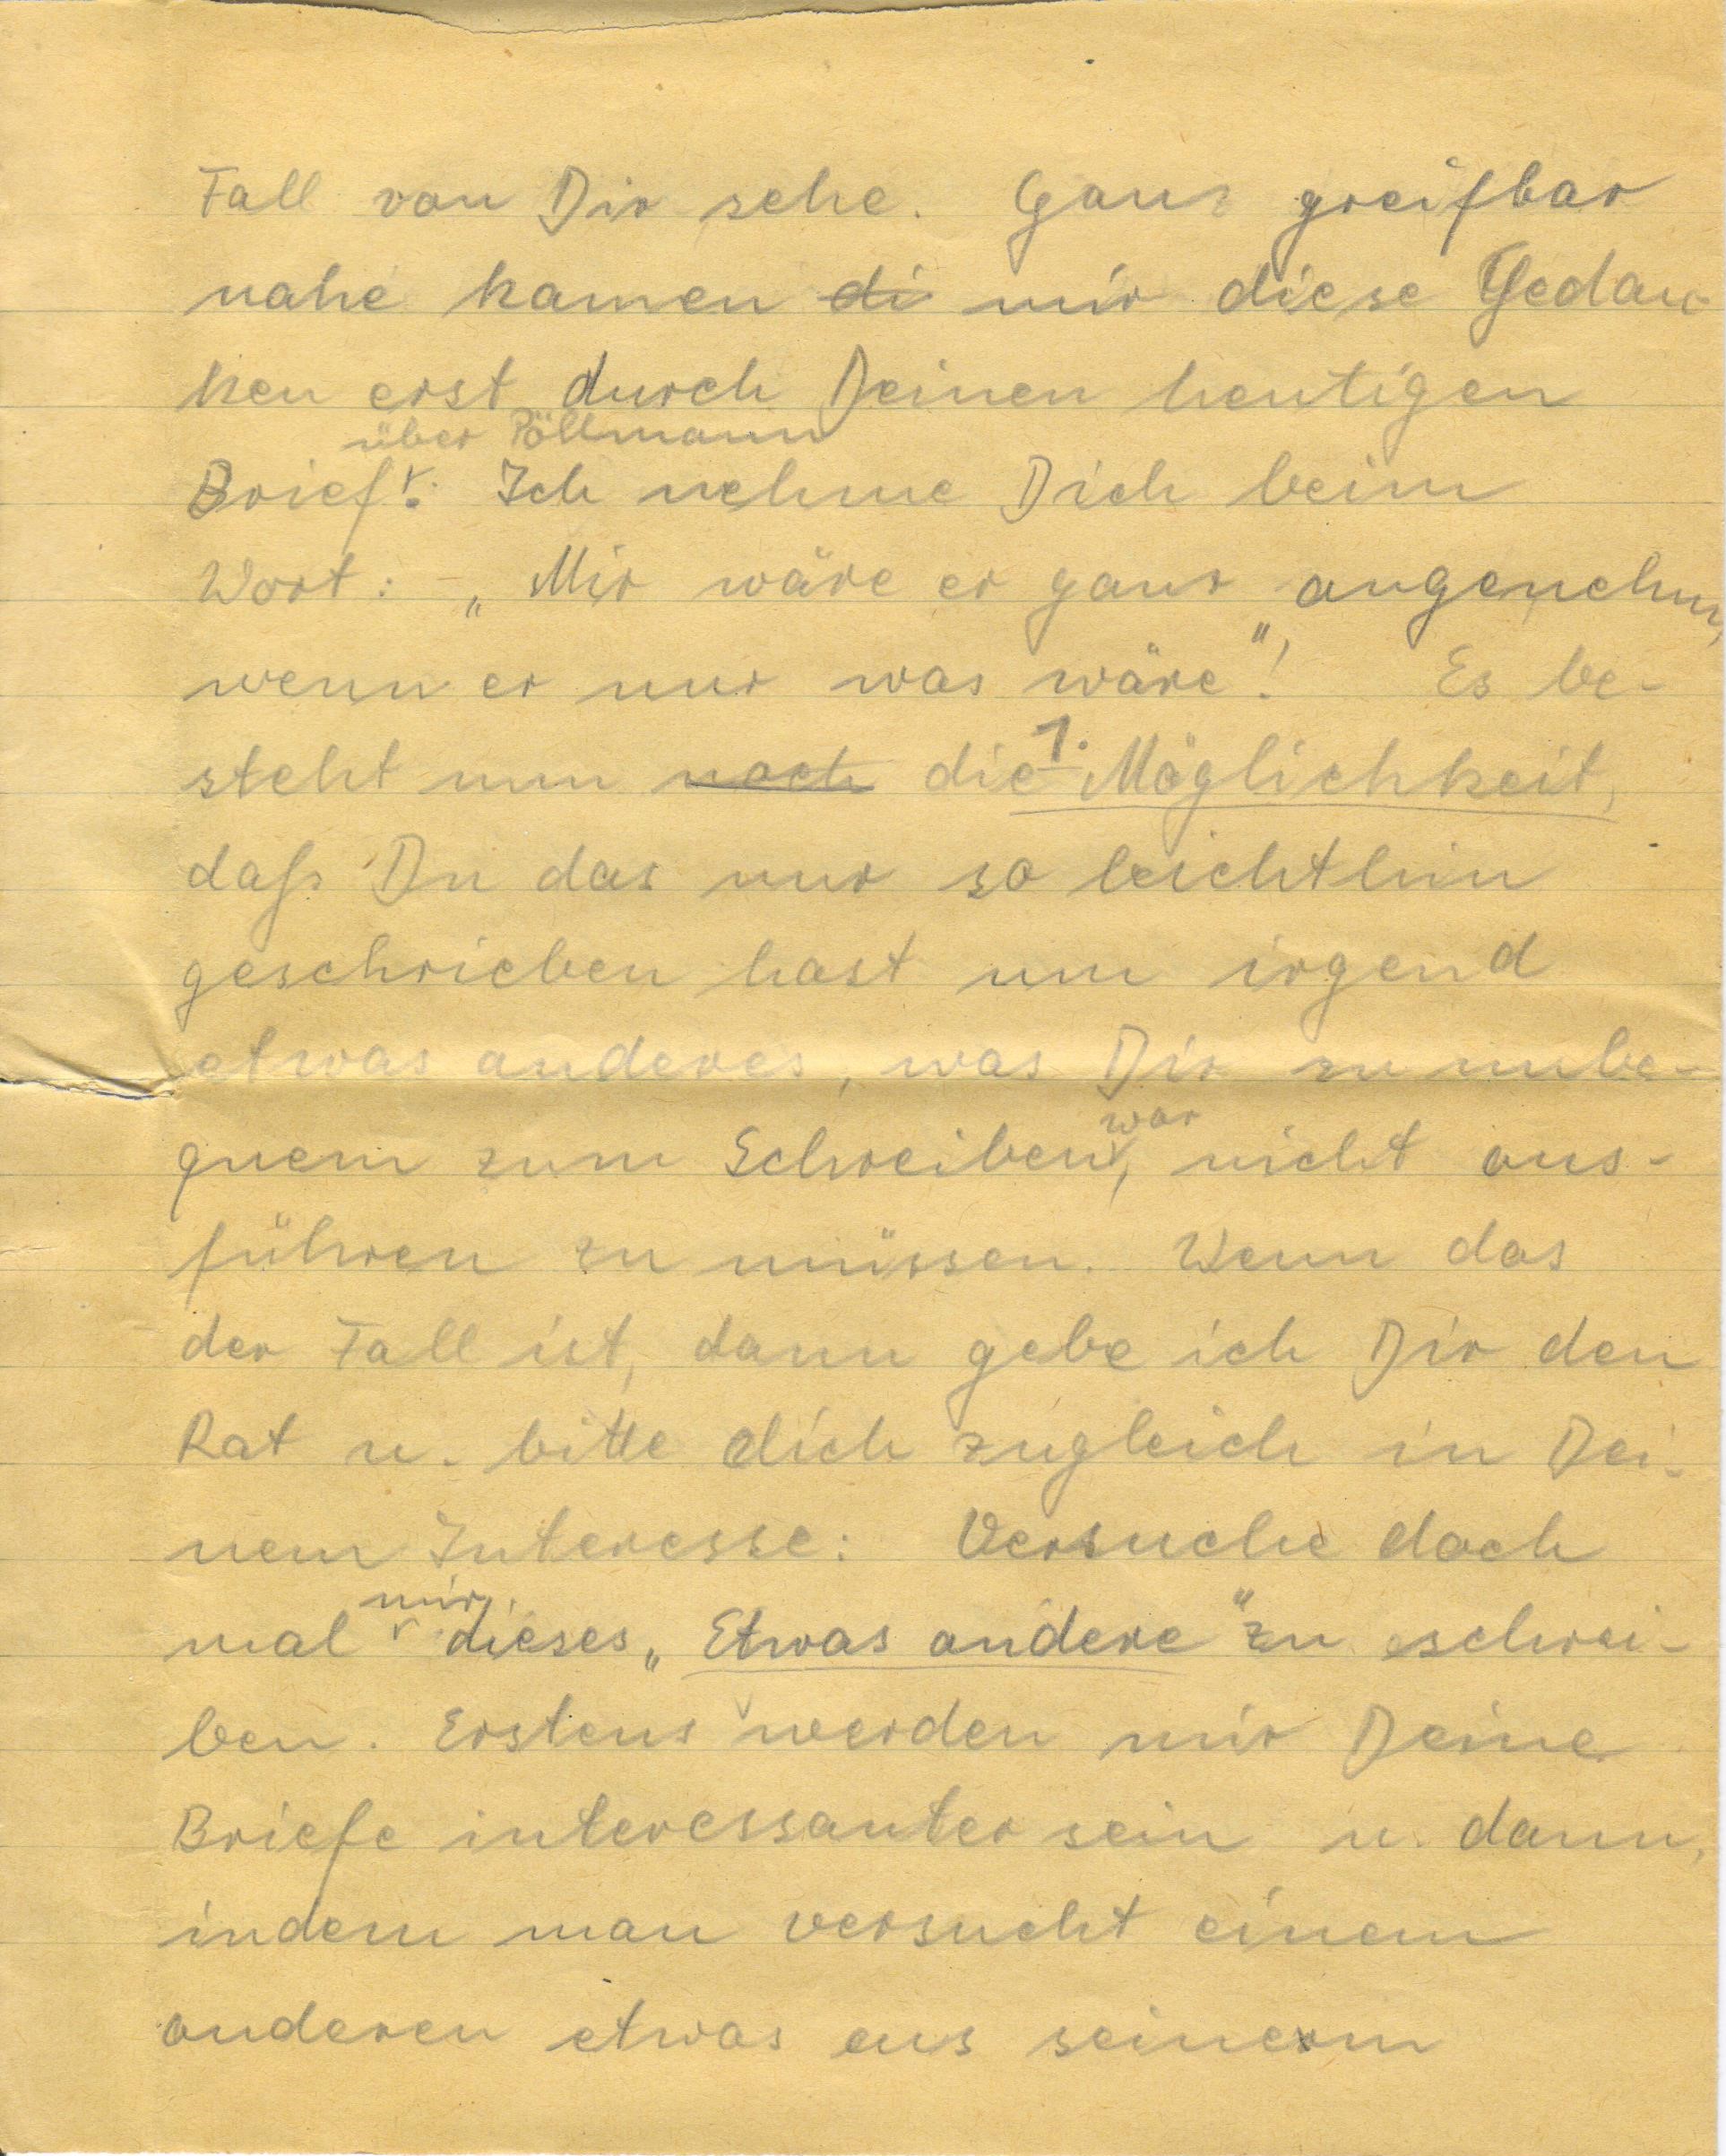 Fall von Dir sehe. Ganz greifbar
nahe kamen di mir diese Gedan-
ken erst durch Deinen heutigen
über Pöllmann
Brief. Ich nehme Dich beim
Wort: - „Mir wäre er ganz angenehm,
wenn er nur was wäre"! Es be-
steht nun noch die 1. Möglichkeit,
daß Du das nur so leichthin
geschrieben hast um irgend
etwas anderes, was Dir zu unbe-
war
quem zum Schreiben, nicht aus-
führen zu müssen. Wenn das
der Fall ist, dann gebe ich Dir den
Rat u. bitte dich zugleich in Dei-
nem Interesse: Versuche doch
mir
mal dieses „Etwas andere" zu schrei-
ben. Erstens werden mir Deine
Briefe interessanter sein u. dann,
indem man versucht einem
anderen etwas aus seinem